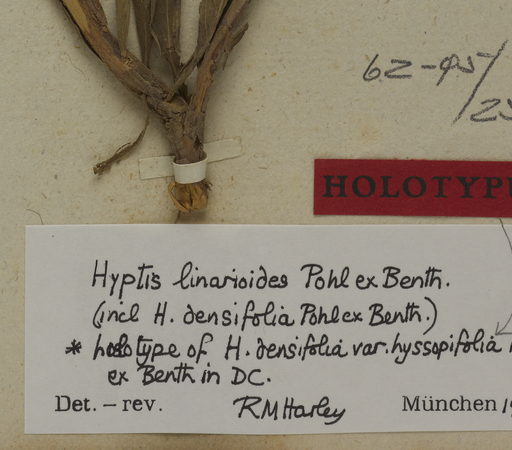 62-95/
HOLOTYPU
Hyptis linarioides Pohl ex Benth.
(incl H. densifolia Pohl ex Benth.)
* holotype of H. densifolia var. hyssopifolia
ex Benth in DC.
Det. – rev. RMHarley München 19